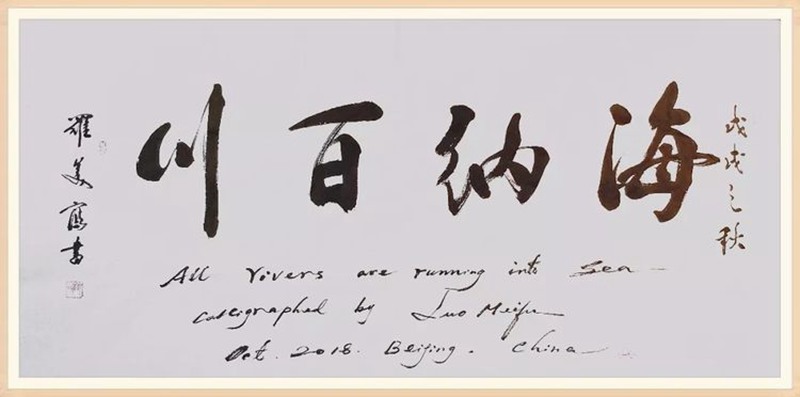 戊戌之秋
海纳百川
羅美富書
All rivers are running into Sea
Calligraphed by Luo Meifu
Oct. 2018. Beijing. China